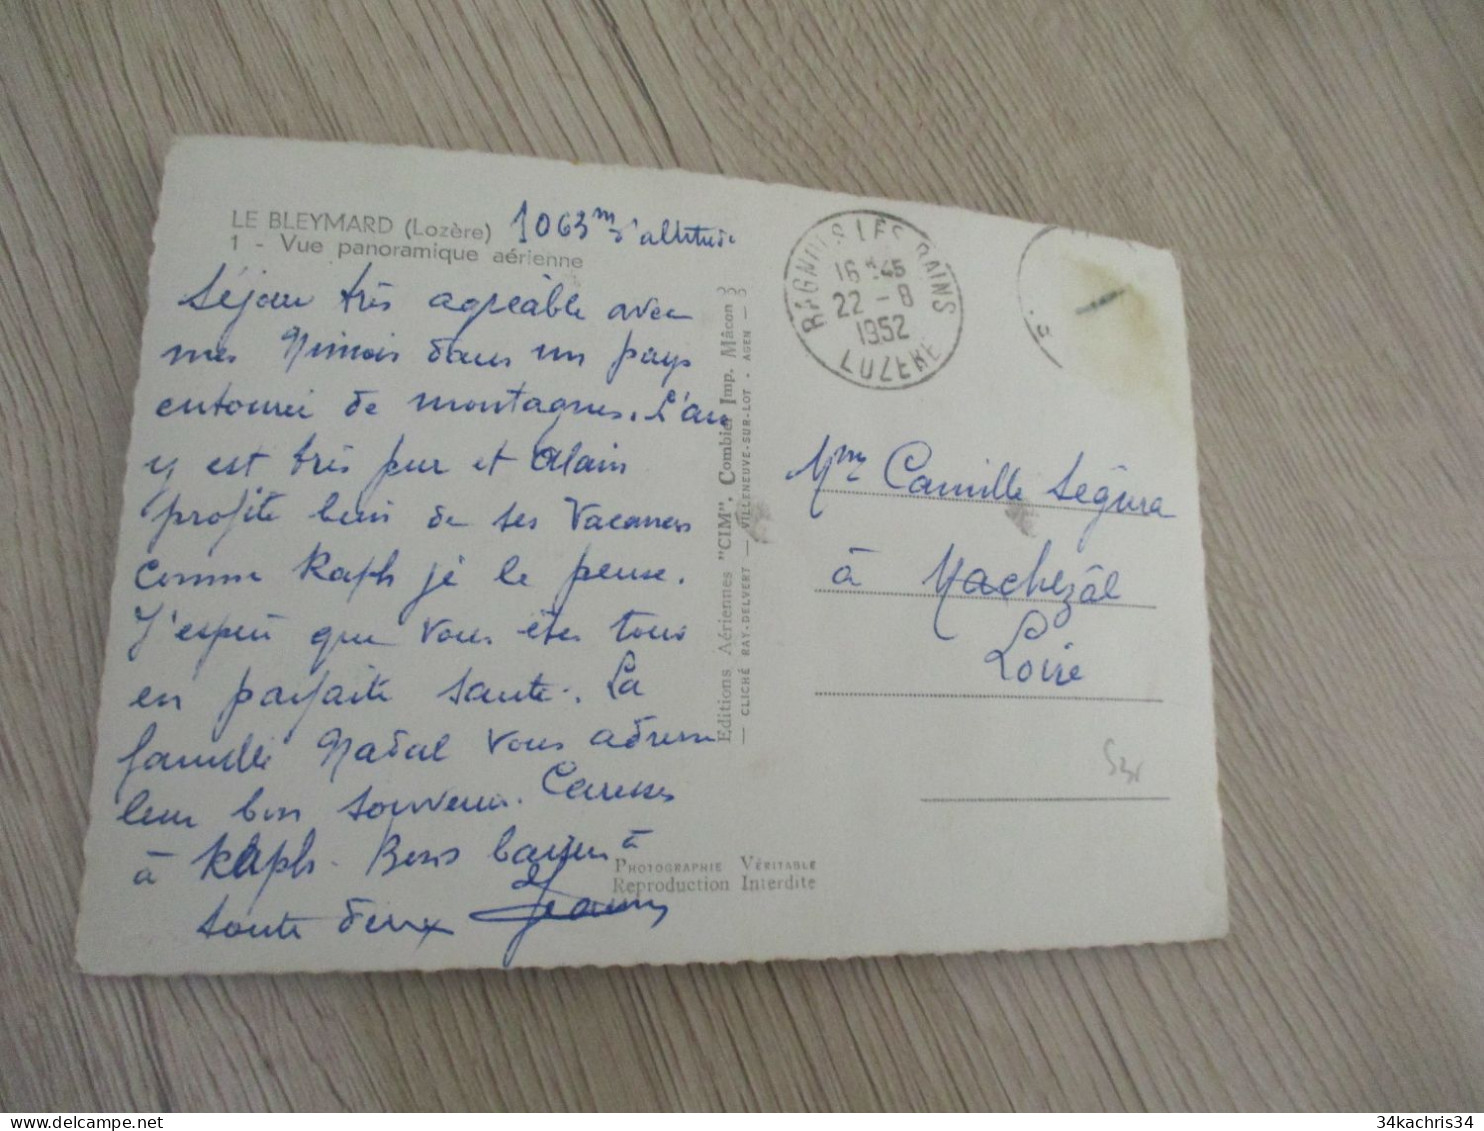 LE BLEYMARD (Lozère)
1063m d'altitude
1 - Vue panoramique aérienne
Séjour très agréable avec
mes Nimois dans un pays
entouré de montagnes. L'air
y est très pur et Alain
profite bien de ses Vacances
comme Raph je le pense.
J'espère que Vous êtes tous
en parfaite santé. La
famille Nadal Vous adresse
leur bon souvenir. Caresses
à Raph. Bons baisers à
toute deux
Editions Aériennes "CIM", Combier Imp. Mâcon
CLICHÉ RAY-DELVERT — VILLENEUVE-SUR-LOT - AGEN
PHOTOGRAPHIE VÉRITABLE
Reproduction Interdite
BAGNOLS LES BAINS
16 45
22 - 8
1952
LOZERE
Mme Camille Ségura
à Machezâl
Loire
delcampe.net
34kachris34